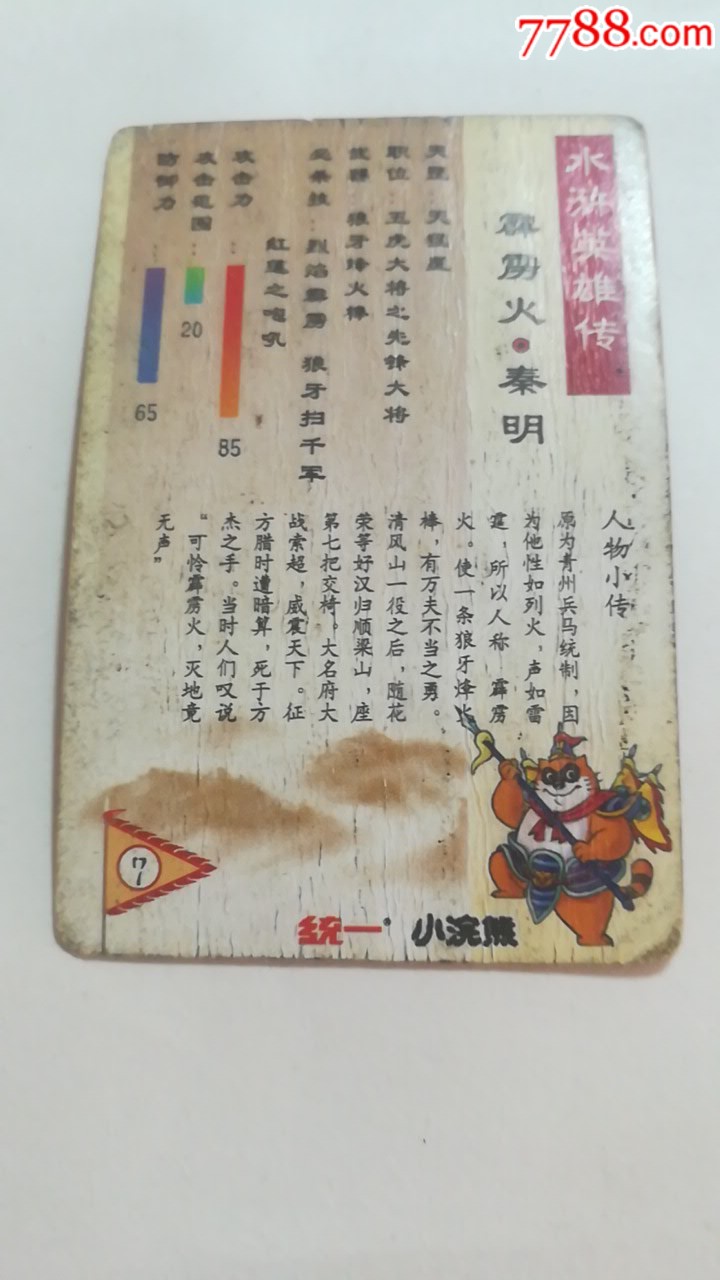 7788.com
水浒英雄传
霹雳火·秦明
天星：天猛星
职位：五虎大将之先锋大将
武器：狼牙烽火棒
必杀技：烈焰霹雳 狼牙扫千军
红莲之咆吼
攻击力：
85
攻击范围：
20
防御力：
65
人物小传
原为青州兵马统制，因
为他性如列火，声如雷
霆，所以人称 霹雳
火。使一条狼牙烽火
棒，有万夫不当之勇。
清风山一役之后，随花
荣等好汉归顺梁山，座
第七把交椅。大名府大
战索超，威震天下。征
方腊时遭暗算，死于方
杰之手。当时人们叹说
“可怜霹雳火，灭地竟
无声”
7
统一® 小浣熊